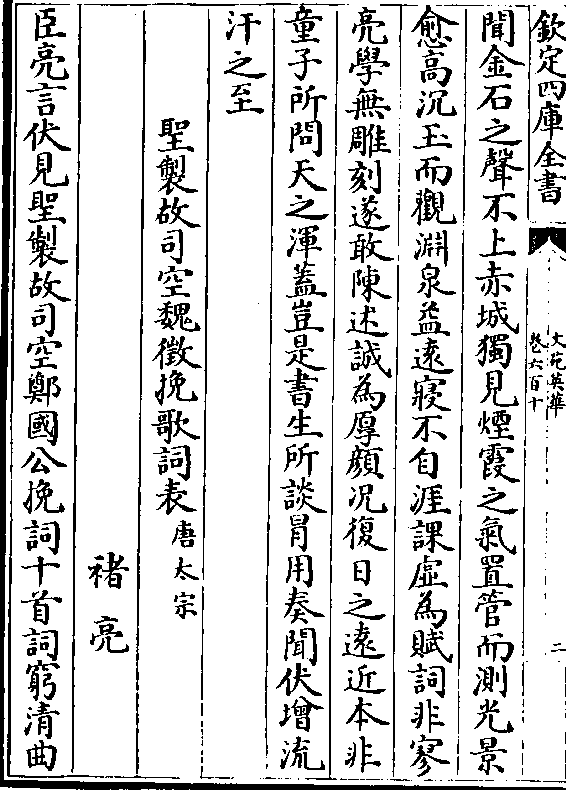 欽定四庫全書
文苑英華
卷六百十
二
聞金石之聲不上赤城獨見煙霞之氣置管而測光景
愈高沉玉而觀淵泉益遠寢不自涯課虛為賦詞非寥
亮學無雕刻遂敢陳述誠為厚顔况復日之遠近本非
童子所問天之渾蓋豈是書生所談胃用奏聞伏增流
汗之至
聖製故司空魏徵挽歌詞表唐太宗
褚亮
臣亮言伏見聖製故司空鄭國公挽詞十首詞窮清曲